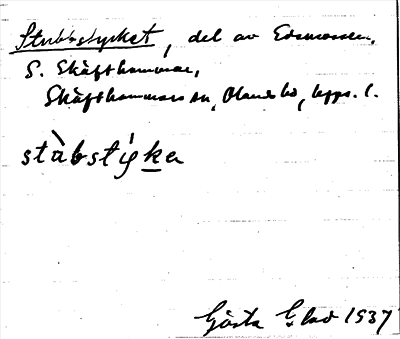 Stubbstycket, del av Edsmossen,
S. Skäfthammar,
Skäfthammars sn, Olands hd, Upps. l.
stàbstíyka
Gösta Blad 1937